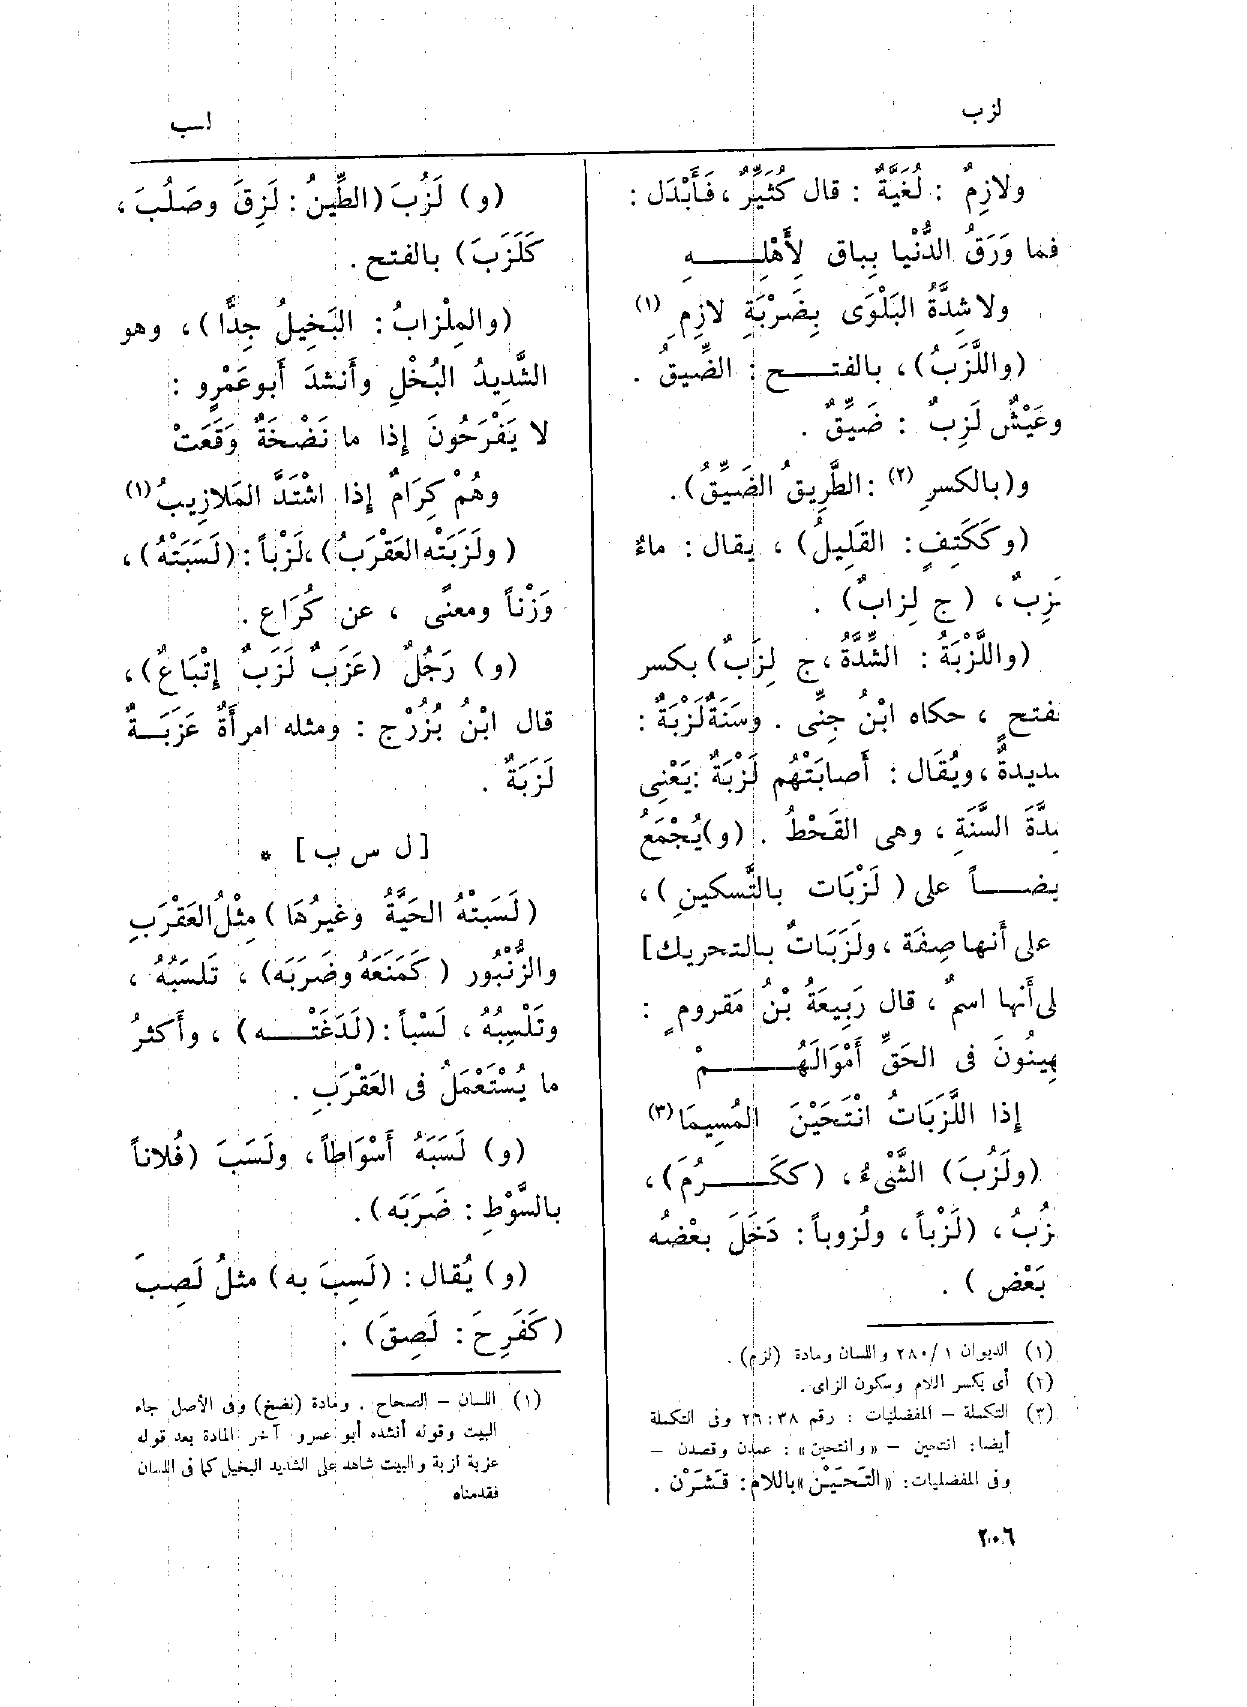 لزب
لسب
ولازِمٌ : لُغَيَّةٌ : قال كُثَيِّرٌ ، فَأَبْدَل :
فما وَرَقُ الدُّنْيا بِباق لِأَهْلِـــهِ
ولا شِدَّةُ البَلْوَى بِضَرْبَةِ لازِمِ (١)
(واللَّزَبُ) ، بالفتـــح : الضِّيقُ .
وعَيْشٌ لَزِبٌ : ضَيِّقٌ .
و(بالكسرِ (٢) : الطَّرِيقُ الضَّيِّقُ) .
(وكَكَتِفٍ : القَلِيلُ) ، يقال : ماءٌ
زِبٌ ، (ج لِزابٌ) .
(واللَّزْبَةُ : الشِّدَّةُ ، ج لِزَبٌ) بكسر
فتحٍ ، حكاه ابْنُ جِنِّى . وسَنَةٌ لَزْبَةٌ :
ديدةٌ ، ويُقال : أَصابَتْهُم لَزْبَةٌ : يَعْنِى
دَّةَ السَّنَةِ ، وهى القَحْطُ . (و) يُجْمَعُ
يضـــاً على (لَزْبَات بالتَّسكينِ) ،
على أَنها صِفَة ، ولَزَبَاتٌ بالتحريك]
لى أَنها اسمٌ ، قال رَبِيعَةُ بْنُ مَقرومٍ :
هِينُونَ فى الحَقِّ أَمْوَالَهُـــمْ
إِذا اللَّزَبَاتُ انْتَحَيْنَ المُسِيمَا (٣)
(ولَزُبَ) الشَّىْءُ ، (ككَـــرُمَ) ،
زُبُ ، (لَزْباً ، ولُزوباً : دَخَلَ بعْضُه
بَعْض) .
(١) الديوان ١ / ٢٨٠ واللسان ومادة (لزم) .
(٢) أى بكسر اللام وسكون الزاى .
(٣) التكملة – المفضليات : رقم ٣٨ : ٢٦ وفى التكملة
أيضا : انتحين – «وانتحين» : عمدن وقصدن –
وفى المفضليات : «التَحَيْن» باللام : قَشَرْن .
(و) لَزُبَ (الطِّينُ : لَزِقَ وصَلُبَ ،
كَلَزَبَ) بالفتح .
(والمِلْزابُ : البَخِيلُ جِدًّا) ، وهو
الشَّدِيدُ البُخْلِ وأَنشدَ أَبو عَمْرٍو :
لا يَفْرَحُونَ إِذا ما نَضْخَةٌ وَقَعَتْ
وهُمْ كِرَامٌ إِذا اشْتَدَّ المَلازِيبُ (١)
(ولَزَبَتْه العَقْرَبُ) ، لَزْباً : (لَسَبَتْهُ) ،
وَزْناً ومعنًى ، عن كُرَاع .
(و) رَجُلٌ (عَزَبٌ لَزَبٌ إِتْبَاعٌ) ،
قال ابْنُ بُزُرْج : ومثله امرأَةٌ عَزَبَـــةٌ
لَزَبَةٌ .
[ل س ب] *
(لَسَبتْهُ الحَيَّةُ وغيرُهَا) مِثْلُ العَقْرَبِ
والزُّنْبُور (كَمَنَعَهُ وضَرَبَه) ، تَلسَبُهُ ،
وتَلْسِبُهُ ، لَسْباً : (لَدَغَتْـــه) ، وأَكثرُ
ما يُسْتَعْمَلُ فى العَقْرَبِ .
(و) لَسَبَهُ أَسْوَاطاً ، ولَسَبَ (فُلاناً
بالسَّوْطِ : ضَرَبَه) .
(و) يُقال : (لَسِبَ به) مثلُ لَصِبَ
(كَفَرِحَ : لَصِقَ) .
(١) اللسان – الصحاح . ومادة (نضخ) وفى الأصل جاء
البيت وقوله أنشده أبو عمرو آخر المادة بعد قوله
عزبة لزبة والبيت شاهد على الشديد البخيل كما فى اللسان
فقدمناه
٢٠٦